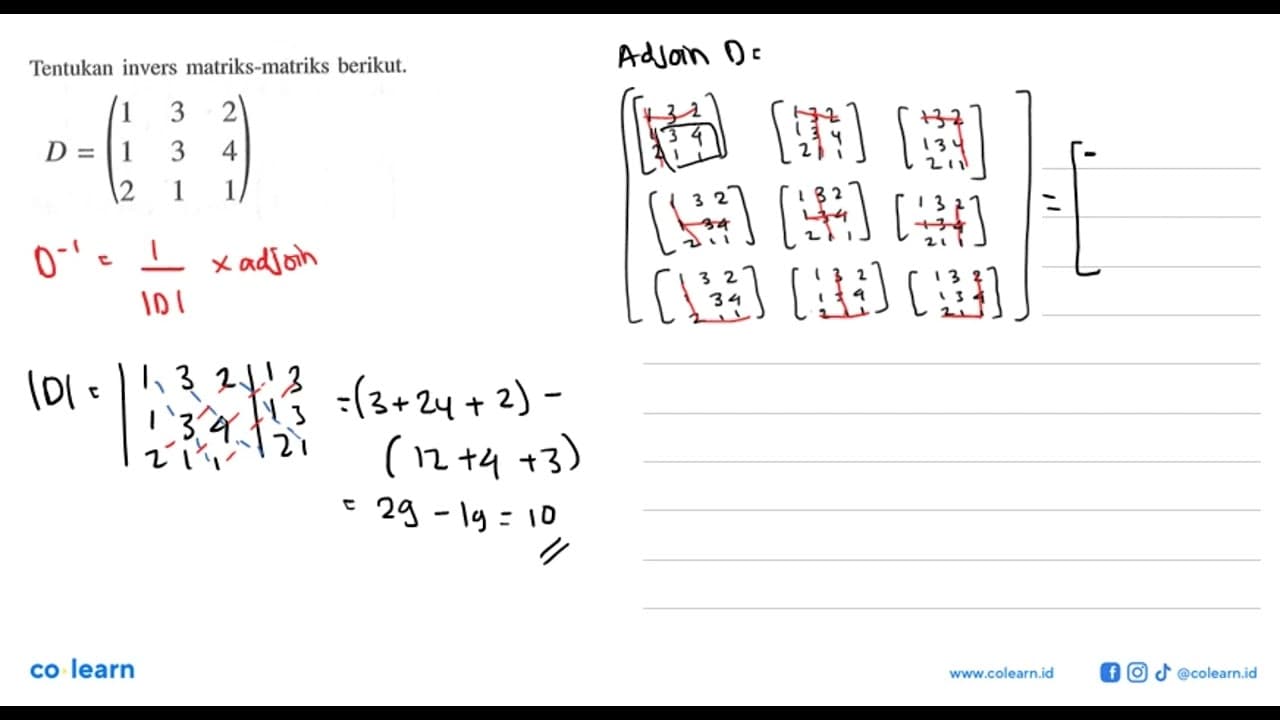 Tentukan invers matriks-matriks berikut.
D = (1 3 2
1 3 4
2 1 1)
D⁻¹ = 1/|D| x adjoin
|D| = |1 3 2| 1 3
1 3 4 | 1 3
2 1 1 | 2 1
= (3 + 24 + 2) -
(12 + 4 + 3)
= 29 - 19 = 10
Adjoin D =
[1 3 2] [1 3 2] [1 3 2]
[1 3 4] [1 3 4] [1 3 4]
[2 1 1] [2 1 1] [2 1 1]
[1 3 2] [1 3 2] [1 3 2]
[3 4] [1 3 4] [1 3 4]
[2 1 1] [2 1 1] [2 1 1]
[1 3 2] [1 3 2] [1 3 2]
[3 4] [1 3 4] [1 3 4]
[2 1 1] [2 1 1] [2 1 1]
= [-
co·learn
www.colearn.id
@colearn.id